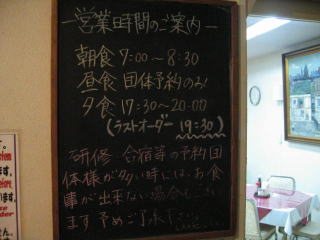 ―営業時間のご案内―
朝食 7:00～8:30
昼食 団体予約のみ!
夕食 17:30～20:00
(ラストオーダー 19:30)
研修・合宿等の予約団
体様が多い時には、お食
事が出来ない場合もござい
ます 予めご了承下さい
す。
ます。